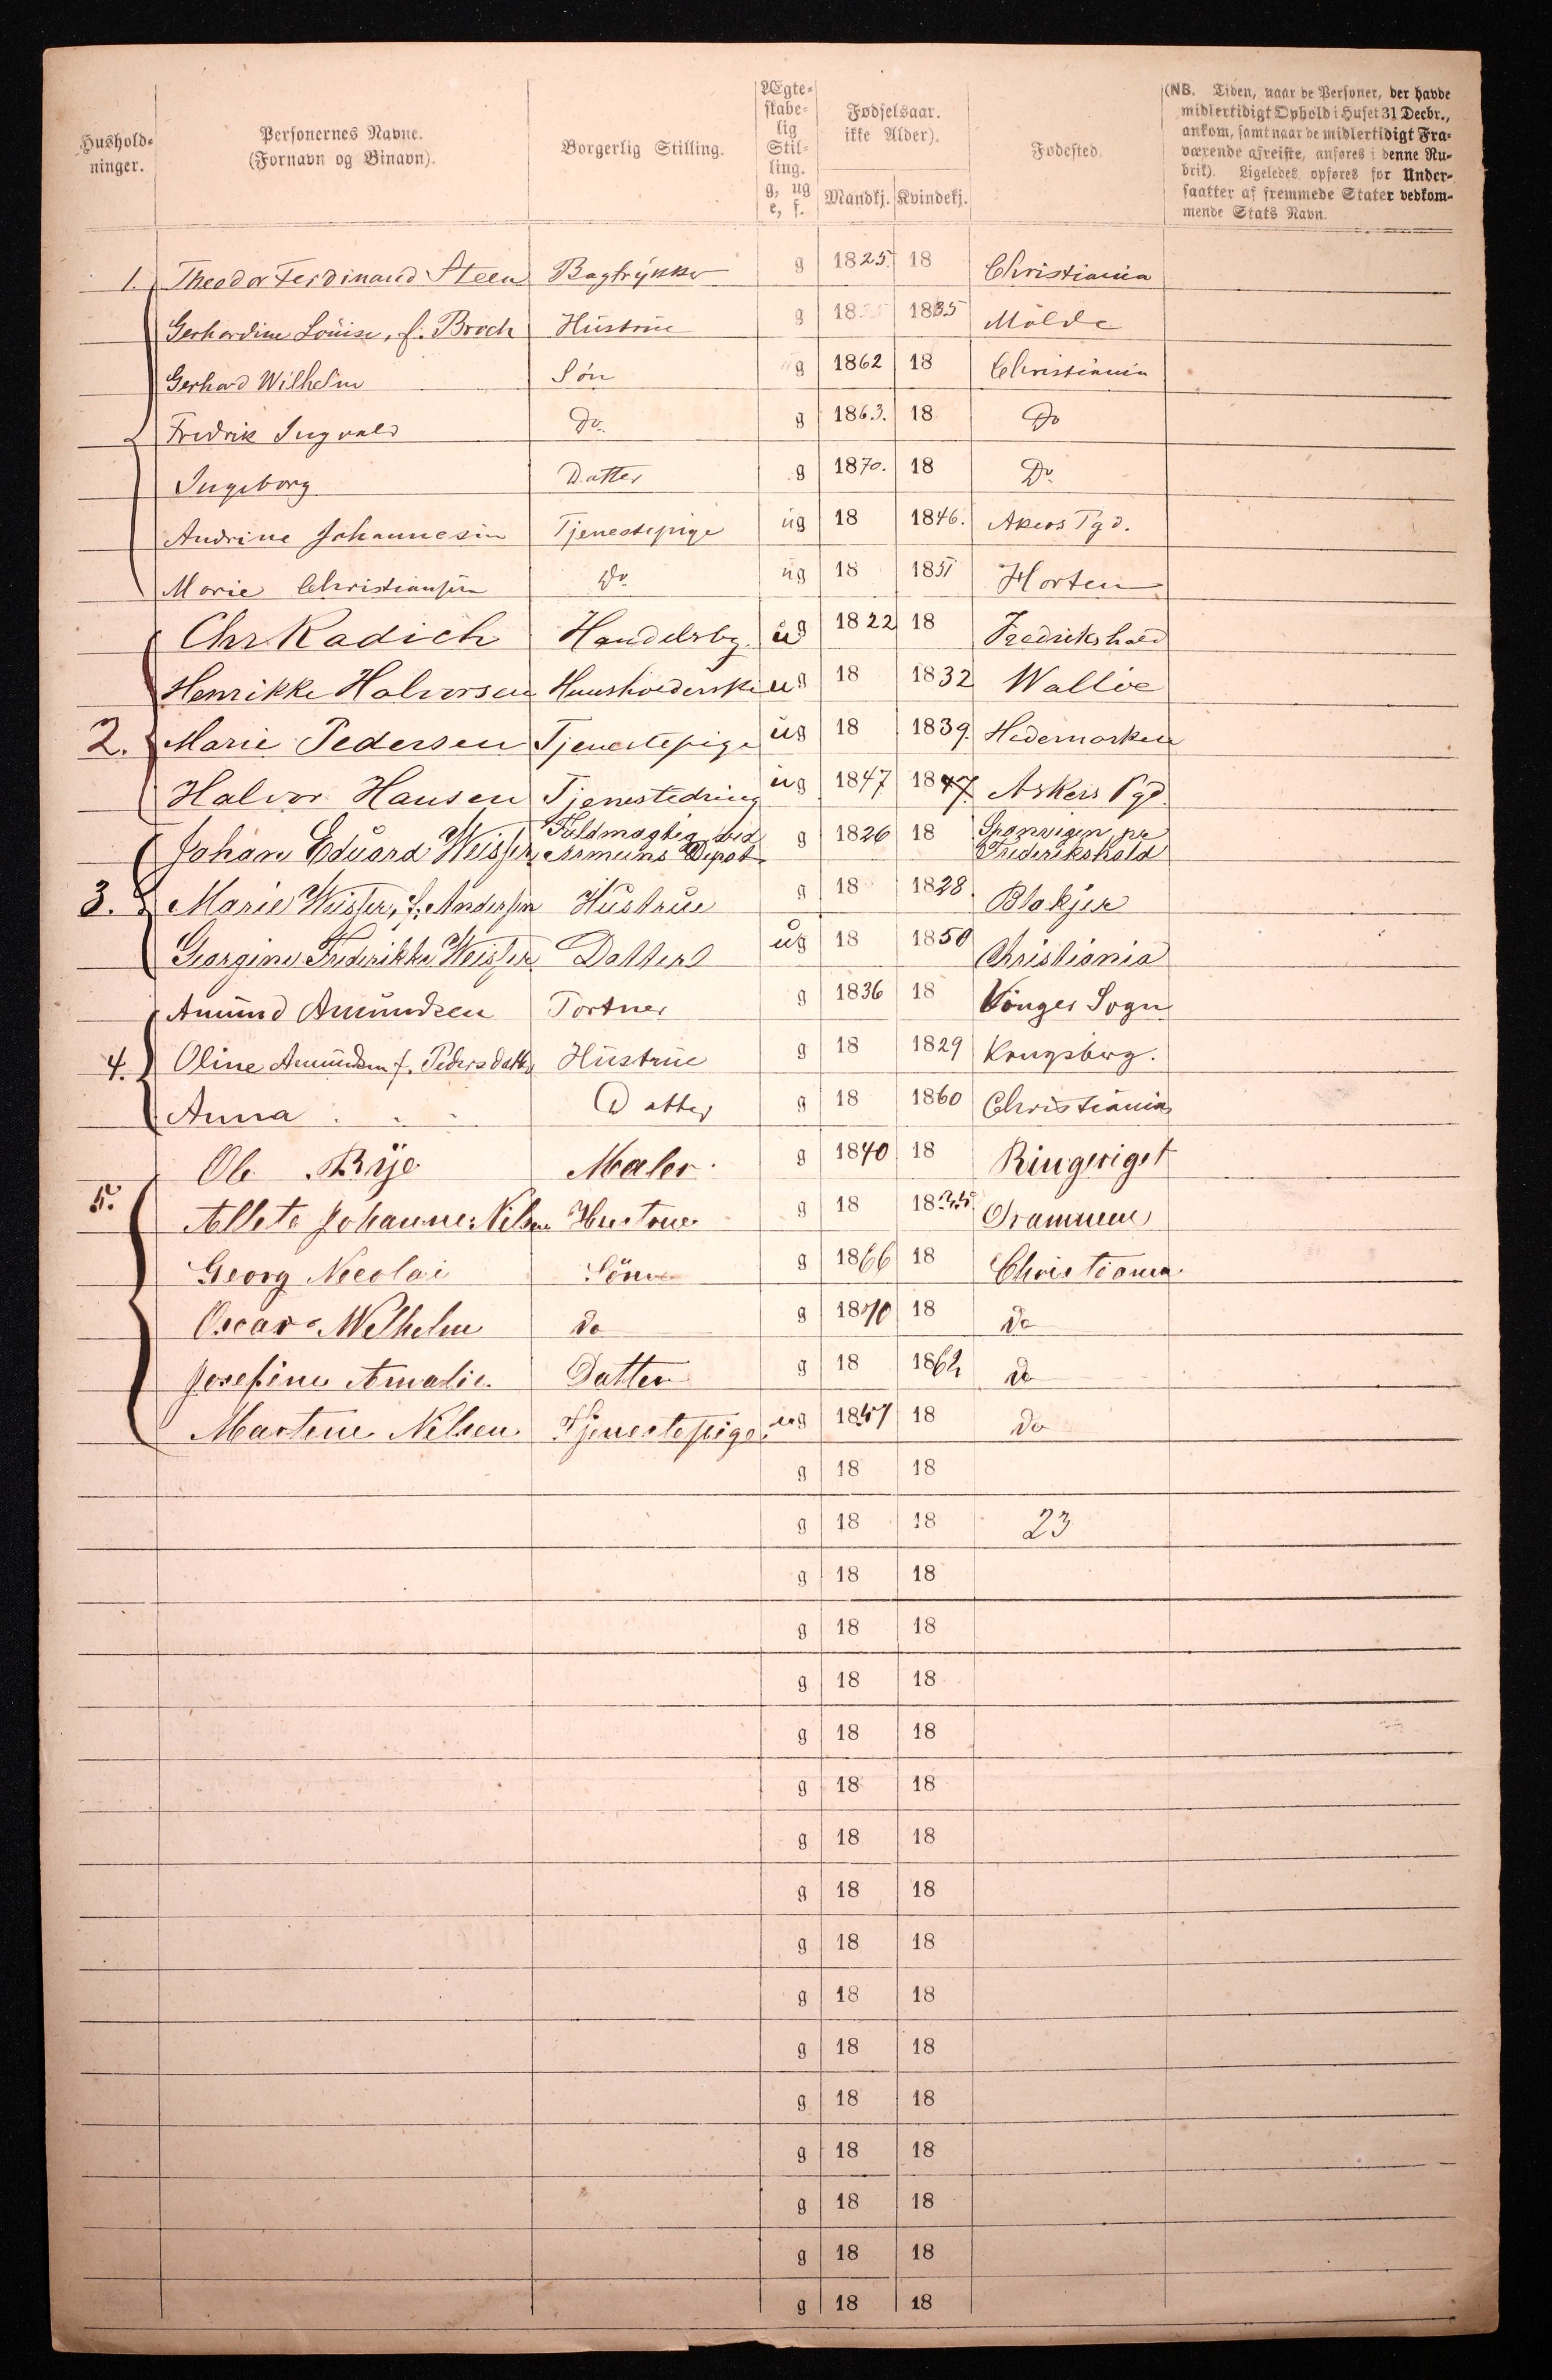 Hushold-
ninger.
Personernes Navne.
(Fornavn og Binavn).
Borgerlig Stilling.
Ægte-
skabe-
lig
Stil-
ling.
g, ug
e, f.
Fødselsaar.
ikke Alder).
Mandkj. Kvindekj.
Fødested.
(NB. Tiden, naar de Personer, der havde
midlertidigt Ophold i Huset 31 Decbr.,
ankom, samt naar de midlertidigt Fra-
værende afreiste, anføres i denne Ru-
brik). Ligeledes opføres for Under-
saatter af fremmede Stater vedkom-
mende Stats Navn.
1. Theodor Ferdinand Steen Bogtrykker g 1825. 18 Christiania
Gerhardine Louise, f. Broch Hustrue g 1835 1835 Molde
Gerhard Wilhelm Søn g 1862 18 Christiania
Fredrik Ingvald Do. g 1863. 18 Do
Ingeborg Datter g 1870. 18 Do
Andrine Johannesen Tjenestepige ug 18 1846. Akers Pgd.
Marie Christiansen Do ug 18 1851 Horten
Chr. Radich Handelsbg. ug 1822 18 Fredrikshald
Henrikke Halvorsen Huusholderske ug 18 1832 Walløe
2. Marie Pedersen Tjenestepige ug 18 1839. Hedemarken
Halvor Hansen Tjenestedreng ug 1847 1847. Askers Pgd.
Johan Eduard Weisser Fuldmægtig ved Armeens Depot g 1826 18 Sponvigen pr Frederikshald
3. Marie Weisser, f. Andersen Hustrue g 18 1828. Blakjer
Georgine Frederikke Weisser Datter ug 18 1850 Christiania
Amund Amundsen Portner g 1836 18 Vinger Sogn
4. Oline Amundsen f. Pedersdatter Hustrue g 18 1829 Kongsberg.
Anna . . . Datter g 18 1860 Christiania
Ole Rye Maler. g 1840 18 Ringeriget
5. Allete Johanne Nilsen Hustrue g 18 1835 Drammen
Georg Nicolai Sönn g 1866 18 Christiania
Oscar Wilhelm do g 1870 18 do
Josefine Amalie. Datter g 18 1862 do
Martine Nilsen Tjenestepige. ug 1851 18 do
g 18 18
g 18 18 23
g 18 18
g 18 18
g 18 18
g 18 18
g 18 18
g 18 18
g 18 18
g 18 18
g 18 18
g 18 18
g 18 18
g 18 18
g 18 18
g 18 18
g 18 18